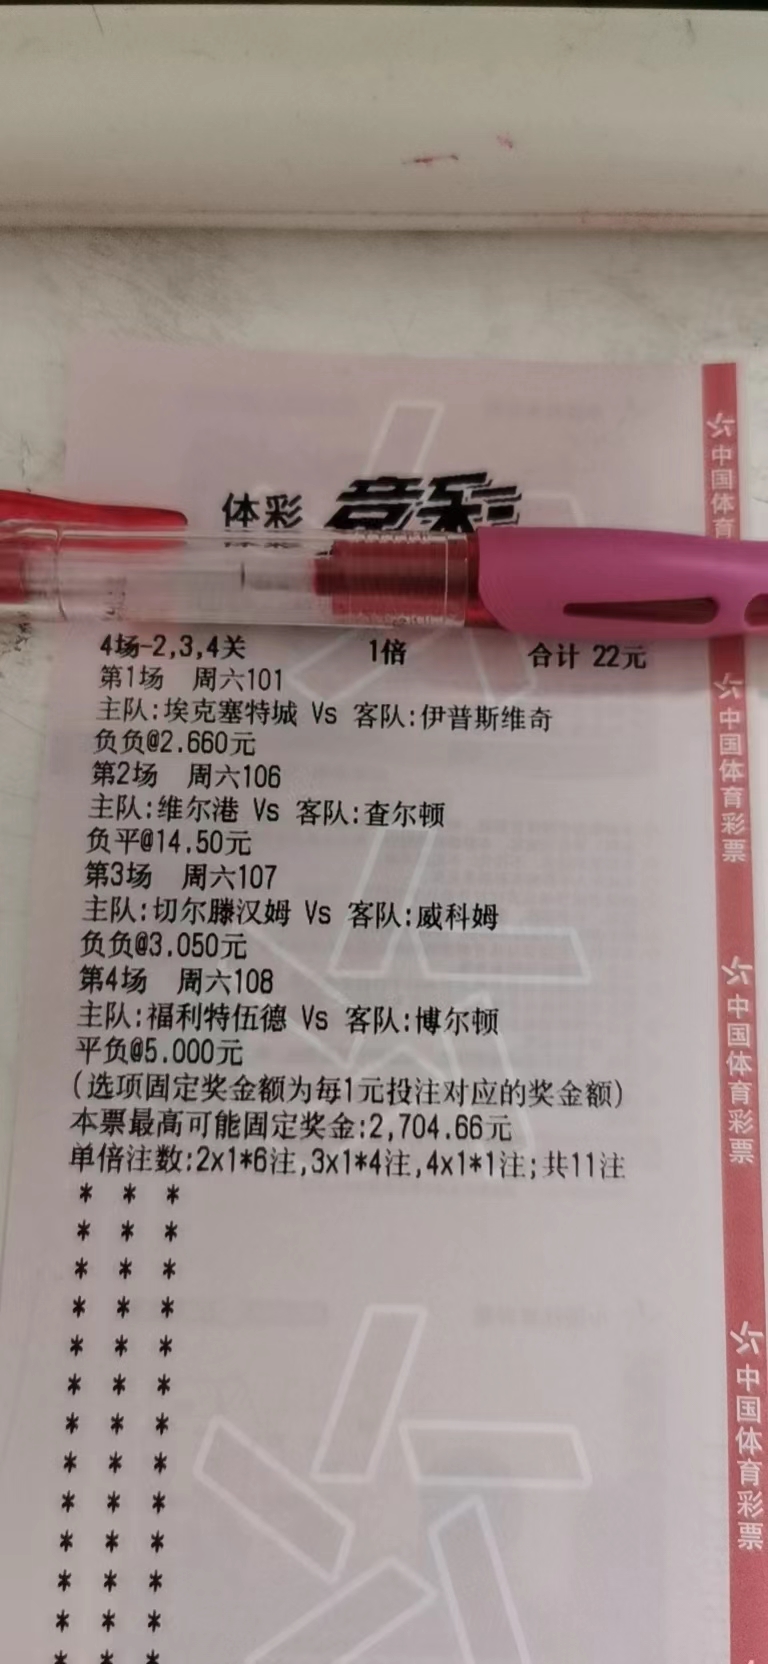 体彩 竞彩
4场-2,3,4关 1倍 合计 22元
第1场 周六101
主队:埃克塞特城 Vs 客队:伊普斯维奇
负负@2.660元
第2场 周六106
主队:维尔港 Vs 客队:查尔顿
负平@14.50元
第3场 周六107
主队:切尔滕汉姆 Vs 客队:威科姆
负负@3.050元
第4场 周六108
主队:福利特伍德 Vs 客队:博尔顿
平负@5.000元
(选项固定奖金额为每1元投注对应的奖金额)
本票最高可能固定奖金:2,704.66元
单倍注数:2x1*6注,3x1*4注,4x1*1注;共11注
* * *
* * *
* * *
* * *
* * *
* * *
* * *
* * *
* * *
* * *
* * *
* * *
* * *
中国体育
中国体育彩票
中国体育彩票
中国体育彩票